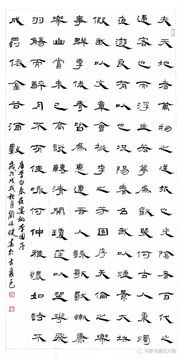 夫天地者萬物之逆旅也光陰者百代之
過客也而浮生若夢為歡幾何古人秉燭
夜遊良有以也況陽春召我以煙景大塊
假我以文章會桃李之芳園序天倫之樂
事群季俊秀皆為惠連吾人詠歌獨慚康
樂幽賞未已高談轉清開瓊筵以坐花飛
羽觴而醉月不有佳詠何伸雅懷如詩不
成罰依金谷酒數
唐李白春夜宴桃李園序
歲次戊戌秋月劉